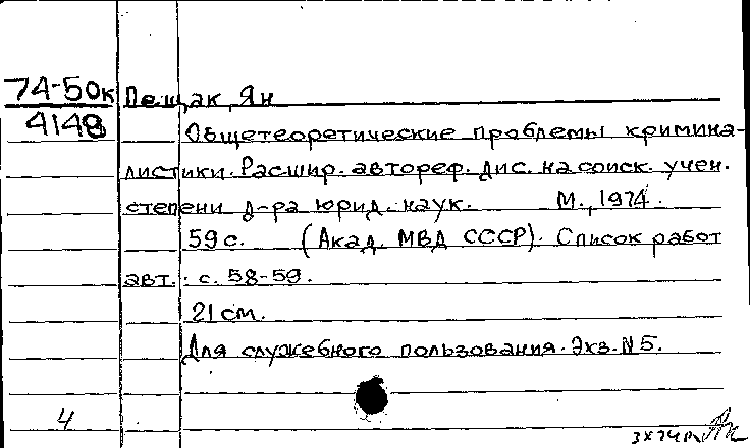 74-50к Пещак, Ян
4148
Общетеоретические проблемы кримина-
листики. Расшир. автореф. дис. на соиск. учен.
степени д-ра юрид. наук. М., 1974.
59 с. (Акад. МВД СССР). Список работ
авт.: с. 58-59.
21 см.
Для служебного пользования. Экз. N 5.
4